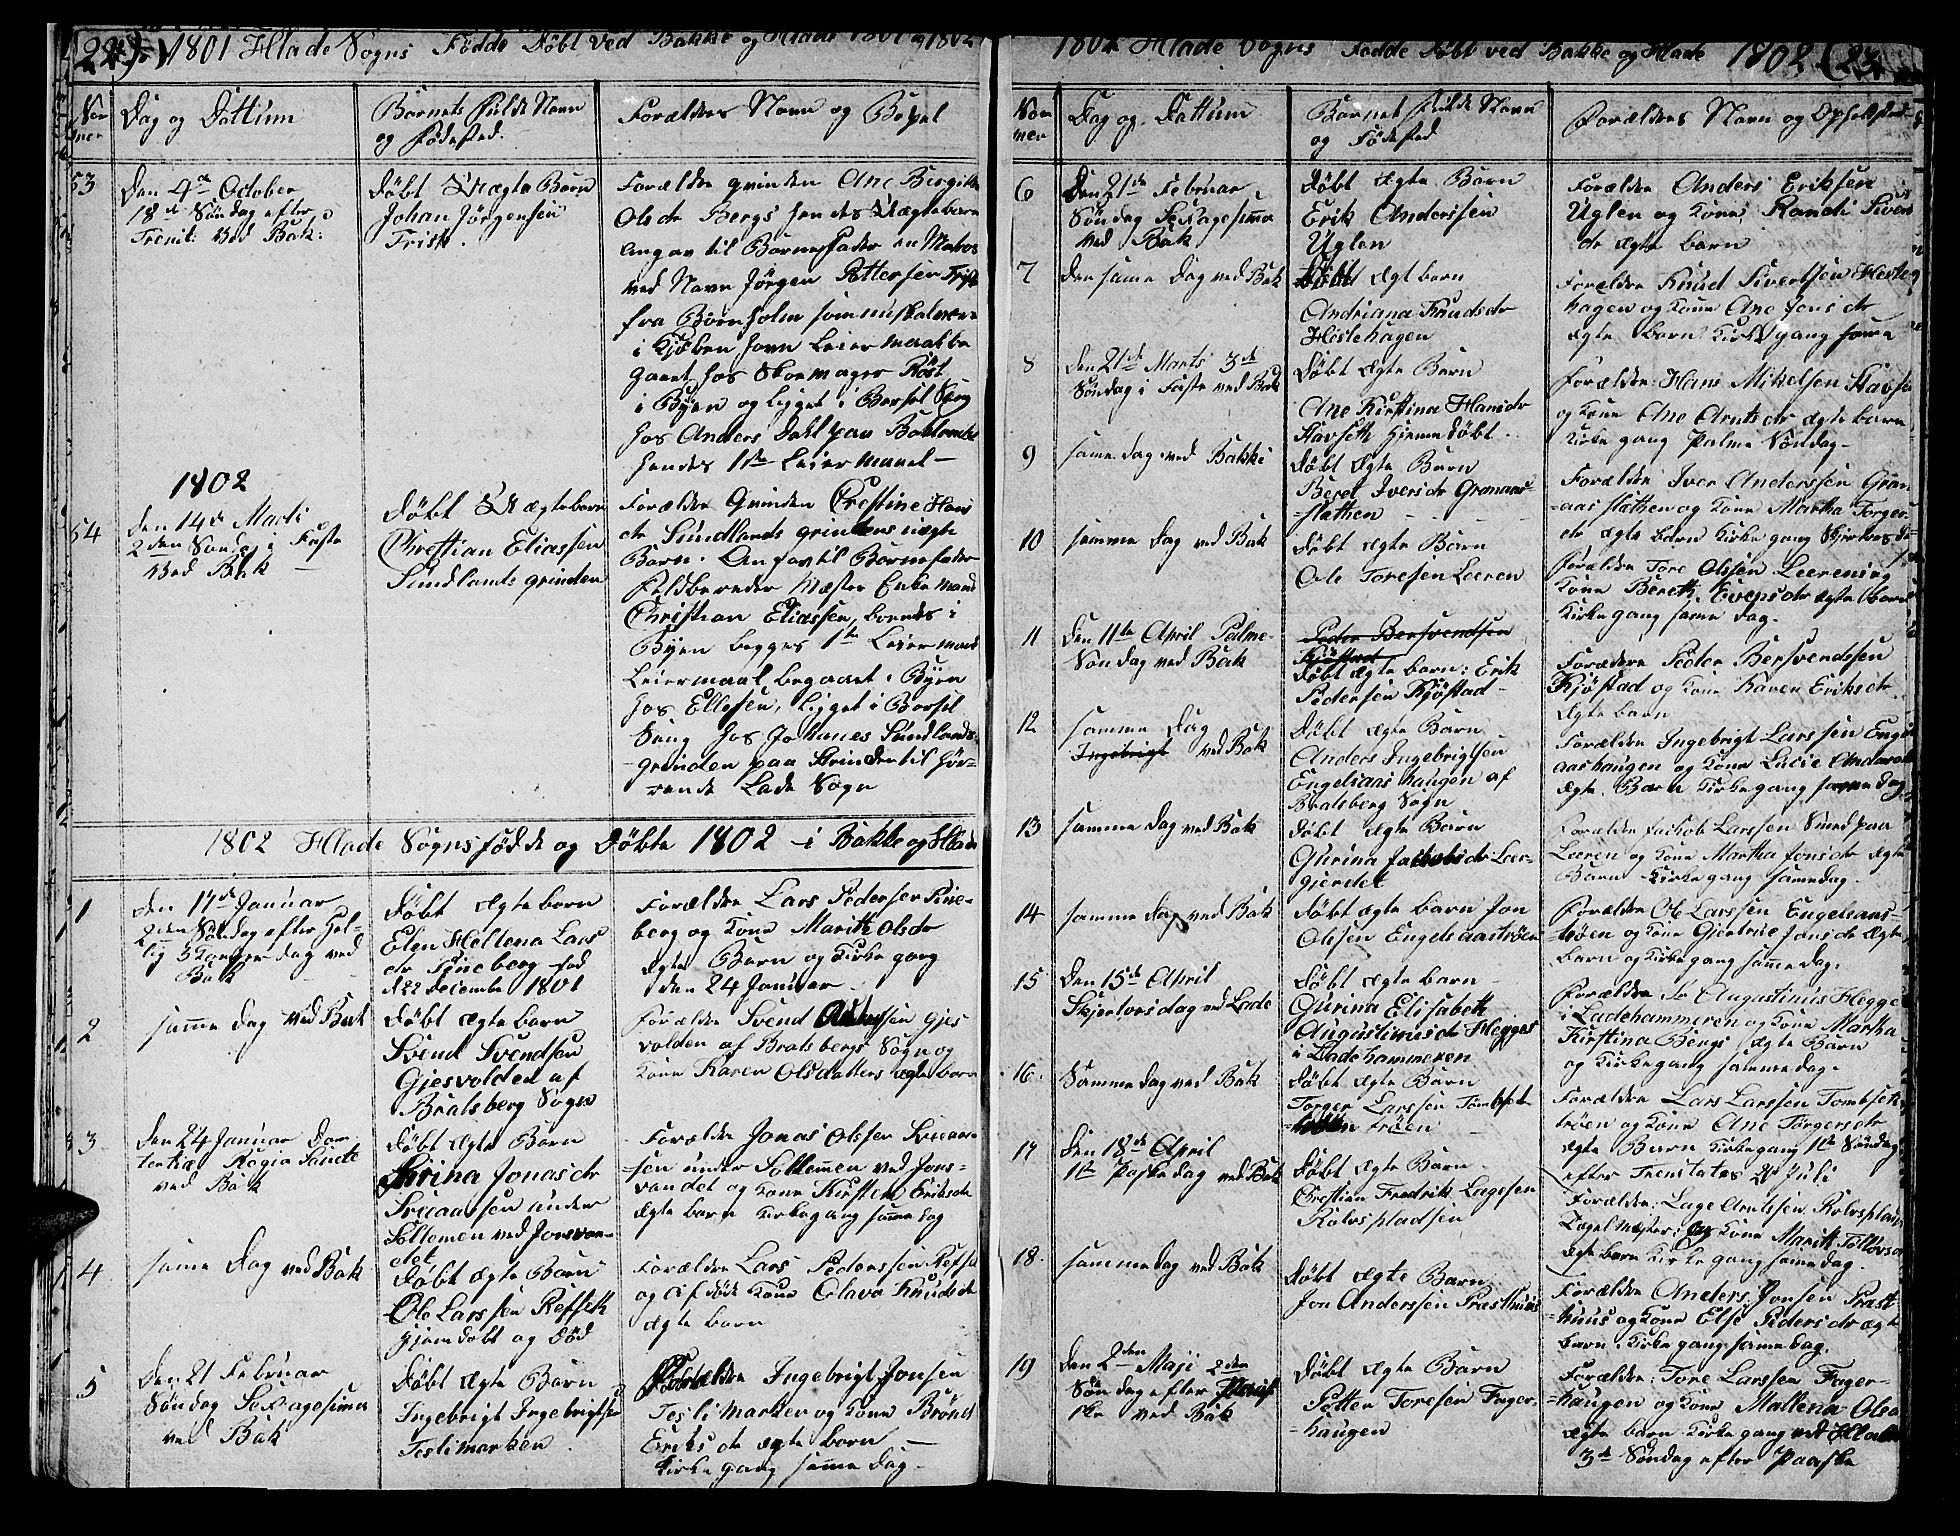 22 1801 Hlade Sogns Födde Döbt ved Bakke og Hlade 1801 og 1802
No mer
Dag og Dattum
Barnets fulde Navn og Födested.
Forældres Navn og Bopæl
53
Den 4de October
18de Söndag efter
Trenit: Ved Bak:
Döbt Uægte Barn
Johan Jörgensen
Trist.
Forældre qvinden Ane Bergitte
Olsdr Bergs hendes Uægte barn
angav til Barnefader en Matros
ved Navn Jörgen Pettersen Trist
fra Bornholm som nu skal være
i Kjöbenhavn Leiermaal be
gaaet hos Skoemager Röst
i Byen og ligget i Barsel Seng
hos Anders Dahl paa Baklandet
hendes 1ste Leiermaal -
1802
54
Den 14de Marti
2den Sönda i Faste
Ved Bak -
Döbt Uægte barn
Chrestian Eliassen
Sundlands grinden
Forældre Qvinden Chrestine Hans
dr Sundlands grindens uægte
Barn. Angav til Barnefader
Feldbereder Mæster Enkemand
Christian Eliassen, boende i
Byen begges 1ste Leiermaal
Leiermaal begaaet i Byen
hos Ellefsen, ligget i Barsel
Seng hos Johanes Sundlands
grinden paa Strinden til hör-
rende Lade Sogn
1802 Hlade Sogns födde og Döbte 1802 - i Bakke og Hlade
1
Den 17de Januar
2den Söndag efter Hel-
lig 3 Konger dag ved
Bak
Döbt ægte barn
Elen Hellena Lars
dr Pineberg fød
d 22 December 1801
Forældre Lars Pedersen Pine-
berg og Kone Marith Olsdr
ægte Barn og Kirkegang
den 24 Januar
2
samme dag ved Bak
Döbt ægte barn
Svend Svendsen
Gjesvolden af
Bratsberg Sogn
Forældre Svend Gjes
volden af Bratsbergs Sogn og
Kone Karen Olsdatters ægte barn
3
Den 24 Januar Dom
tertiæ Regia Sancte
ved Bak
Döbt ægte Barn
Jonasdr
under
Sollemen ved Jonsvan-
det
Forældre Jonas Olssen
under Sollemen ved Jons-
vandet og Kone Kirsten Eriksdr
ægte barn Kirkegang samme dag
4
same Dag ved Bak
Döbt ægte Barn
Ole Larssen Reffseth
hjemdöbt og död
Forældre Lars Pedersen Reffset
og afdöde Kone Olava Knudsdr
ægte barn
5
Den 21 Februar
Söndag Sexagesima
ved Bak
Döbt ægte Barn
Ingebrigt Ingebrigtsen
Teslimarken
Forældre Ingebrigt Jonsen
Teslimarken og Kone
Eriksdr ægte barn -
Kirkegang samme dag -
1802 Hlade Sogns Fødde Döbt ved Bakke og Hlade 1802 23
Nom mer
Dag og Dattum
Barnet fulde Navn og Födested
Forældres Navn og Opholdsted
6
Den 21de Februar
Söndag Sexagesima
ved Bak
Döbt ægte Barn
Erik Anderssen
Uglen
Forældre Anders Eriksen
Uglen og Kone Randi Siverts
dr ægte barn
7
Den same Dag ved Bak
Döbt ægt barn
Andriana Knudsdr
Hestehagen
Forældre Knud Sivertsen Heste
hagen og Kone Ane Jonsdr
ægte barn Kirkegang same
8
Den 21de Marts 3de
Söndag i Faste ved Bak
Döbt ægte Barn
Ane Kirstina Hansdr
Stavseth hjemmedöbt.
Forældre Hans Mikelsen Stavse
og Kone Ane Arntsdr ægte barn
Kirkegang Palme Söndag -
9
same dag ved Bakke
Döbt ægte Barn
Beret Iversdr Granaas-
slatten
Forældre Iver Anderssen Gran
aasslatten og Kone Martha Torger
dr ægte barn Kirkegang
10
samme dag ved Bak
Döbt ægte Barn
Ole Toresen Leeren
Forældre Tore Olssen Leeren og
Kone Bereth ægte barn
Kirkegang same dag.
11
Den 11te April Palme
Söndag ved Bak
Peder Bersvendsen
Kjöstad
Döbt ægte barn: Erik
Pedersen Kjöstad -
Forældre Peder Bersvendsen
Kjöstad og Kone Karen Eriksdr.
ægte barn
12
samme Dag
Ingebrigt ved Bak
Döbt ægte Barn
Anders Ingebrigtsen
Engelsaas haugen af
Bratsberg Sogn
Forældre Ingebrigt Larssen Engels
aashaugen og Kone Lucie Anders
ægte Barn Kirkegang samme dag
13
samme dag ved Bak
Döbt ægte Barn
Gurina Jacobsdr Leer-
gjerdet
Forældre Jachob Larssen Smed paa
Leeren og Kone Martha Jonsdr ægte
Barn Kirkegang samme dag.
14
samme dag ved Bak
Döbt ægte barn Jon
Olssen Engelsaaströen
Forældre Ole Larssen Engelsaas-
tröen og Kone Gjertrue Jonsdr ægte
barn og Kirkegang samme dag.
15
Den 15de April
Skjertorsdag ved Lade
Döbt ægte barn
Gurina Elisabeth
Augustinusdr Hegges
i Ladehammeren
Forældre Augustinus Hegge
i Ladehammeren og Kone Martha
Kirstina Bergs ægte Barn
og Kirkegang samme dag.
16
Samme dag ved Bak
Döbt ægte Barn
Torger Larssen Tombset
tröen
Forældre Lars Larssen Tombseth
tröen og Kone Ane Torgersdr
ægte Barn Kirkegang 1ste Söndag
efter Trenitates Juli
17
Den 18de April
1ste Paaske dag ved Bak
Döbt ægte Barn
Christian Fredrik Lagessen
Rotvspladsen
Forældre: Lage Arntssen Rotvsplads
og Kone Marith
ægte barn Kirkegang same dag.
18.
samme dag ved Bak
Döbt ægte Barn
Jon Anderssen Præsthuus
Forældre Anders Jonsen Præst
huus og Kone Else Pedersdr ægte
barn Kirkegang samme dag.
19
Den 2den Maji 2den
Söndag efter
ved Bak
Döbt ægte Barn
Petter Toresen Fager-
haugen
Forældre: Tore Larssen Fager-
haugen og Kone Mallena Olsd
ægte barn Kirkegang ved Hlade
3de Söndag efter Paaske